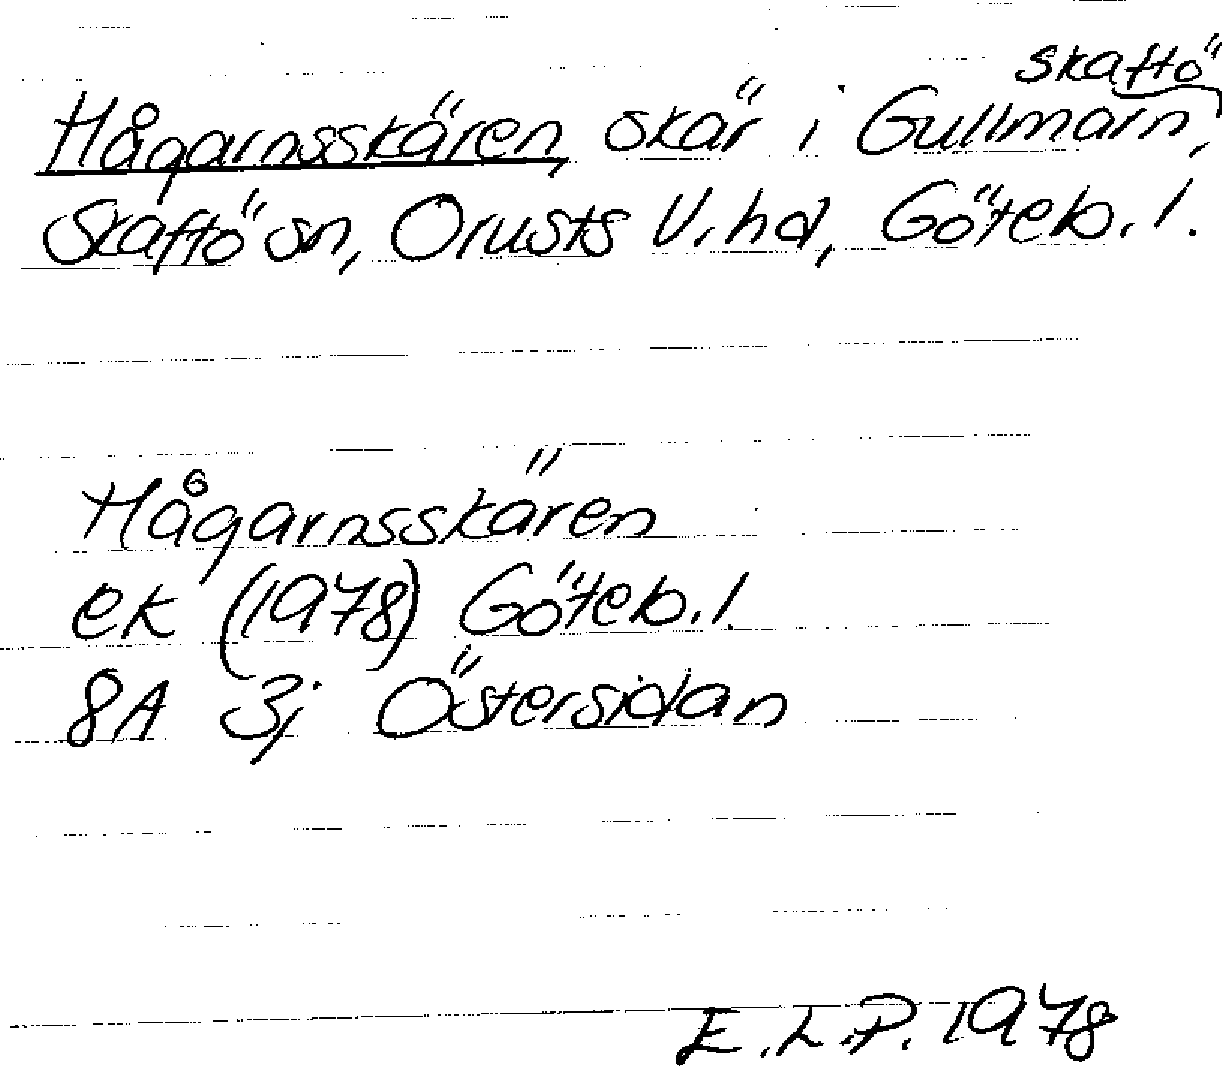 Skaftö
Hågarnsskären, skär i Gullmarn,
Skaftö sn, Orusts V. hd, Göteb. l.
Hågarnsskären
ek (1978) Göteb. l.
8A 3j Östersidan
E.L.P. 1978